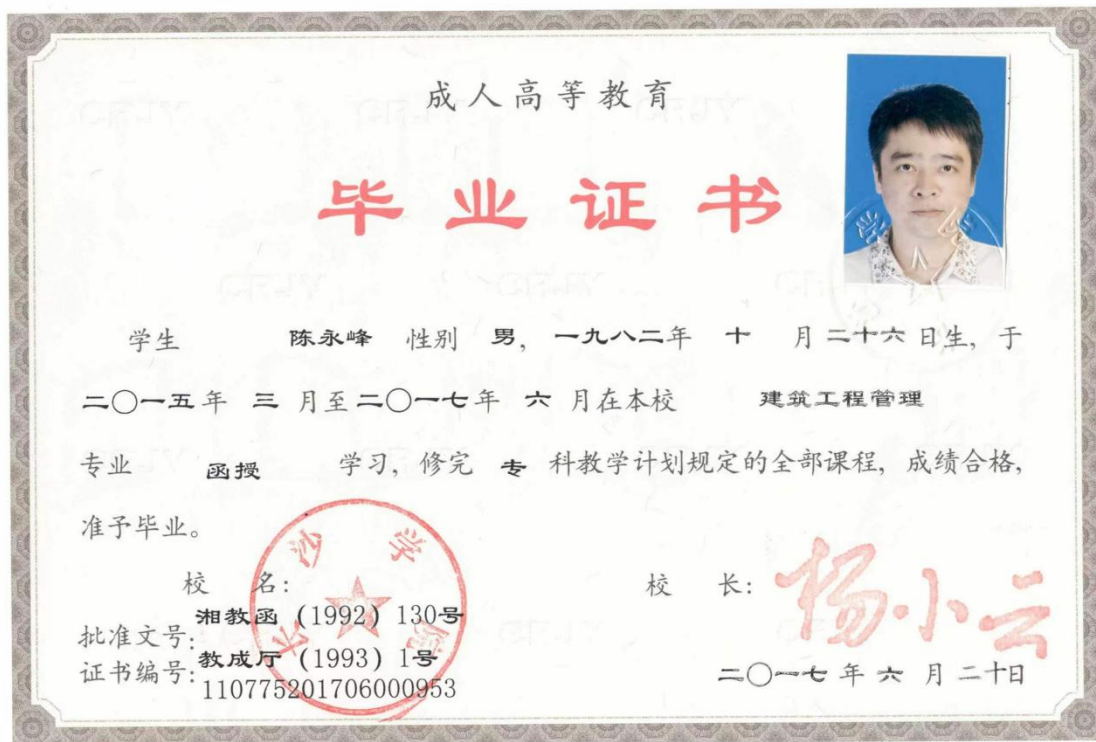 成人高等教育
毕业证书
学生 陈永峰 性别 男，一九八二年 十 月二十六日生，于
二〇一五年 三 月至二〇一七年 六 月在本校 建筑工程管理
专业 函授 学习，修完 专 科教学计划规定的全部课程，成绩合格，
准予毕业。
长沙学院
校 名：
校 长：杨小云
批准文号：湘教函（1992）130号
教成厅（1993）1号
证书编号：110775201706000953
二〇一七年 六 月 二十日